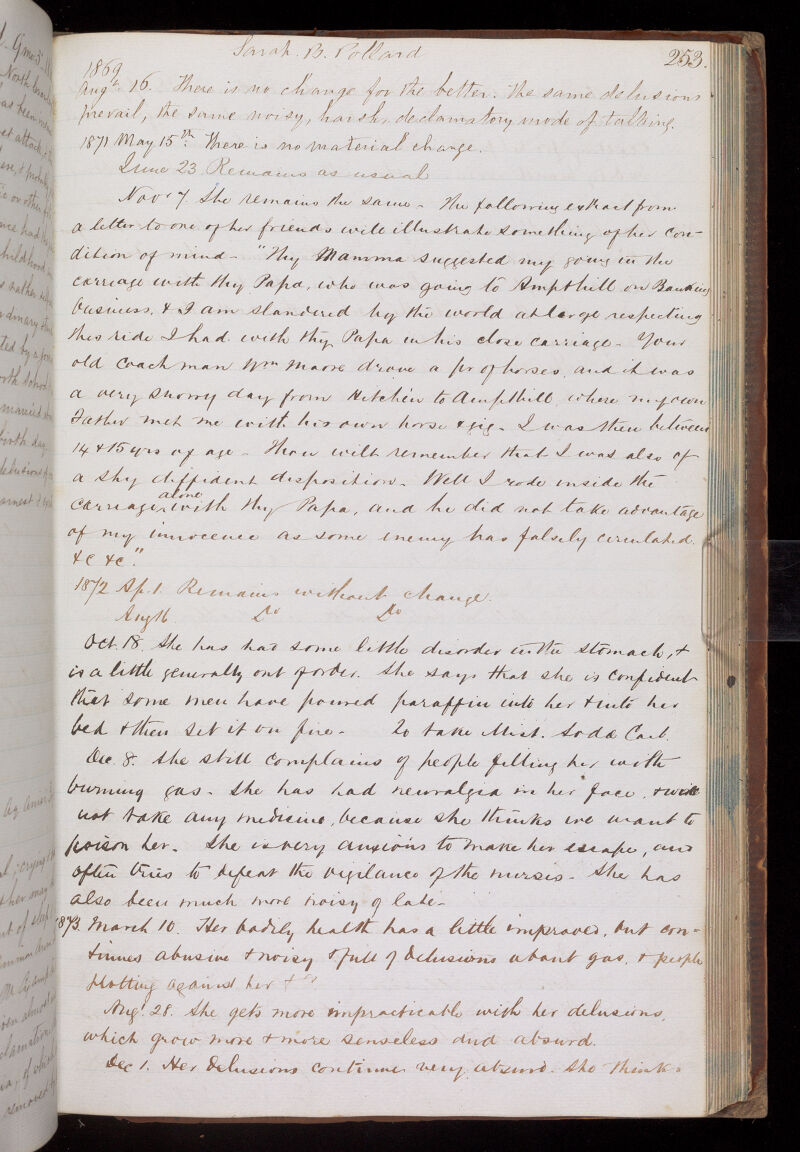 Sarah. B. Pollard
253.
1869
Augt. 16. There is no change for the better. The same delusions
prevail, the same noisy, harsh, declamatory mode of talking.
1871 May 15th. There is no material change.
June 23 Remains as usual
Novr 7 She remains the same - The following extract from
a letter to one of her friends will illustrate something of her con-
dition of mind - "Thy Mamma suggested my going in the
carriage with thy Papa, who was going to Ampthill on Banking
business, & I am slandered by the world at large respecting
this ride I had with thy Papa in his close carriage - Your
old coachman Wm Moore drove a pr of horses, and it was
a very snowy day from Hitchin to Ampthill, where my own
Father met me with his own horse & gig - I was then between
14 & 15 yrs of age - Thou wilt remember that I was also of
a shy diffident disposition - Well I rode inside the
carriage alone with thy Papa, and he did not take advantage
of my innocence as some enemy has falsely circulated.
&c &c."
1872 Ap. 1. Remains without change.
Aug 16. Do Do
Oct. 18. She has had some little disorder in the stomach, &
is a little generally out of order. She says that she is confident
that some men have poured paraffin into her & into her
bed & then set it on fire - To take Mist. Sodae Carb.
Dec. 8. She still complains of people filling her with
burning gas - She has had neuralgia in her face, & will
not take any medicine, because she thinks we want to
poison her - She is very anxious to make her escape, and
often tries to defeat the vigilance of the nurses - She has
also been much more noisy of late -
1873. March 10. Her bodily health has a little improved, but con-
tinues abusive & noisy & full of delusions about gas, & people
plotting against her &c
Aug. 28. She gets more impracticable with her delusions,
which grow more & more senseless and absurd.
Dec 1. Her delusions continue very absurd. She thinks